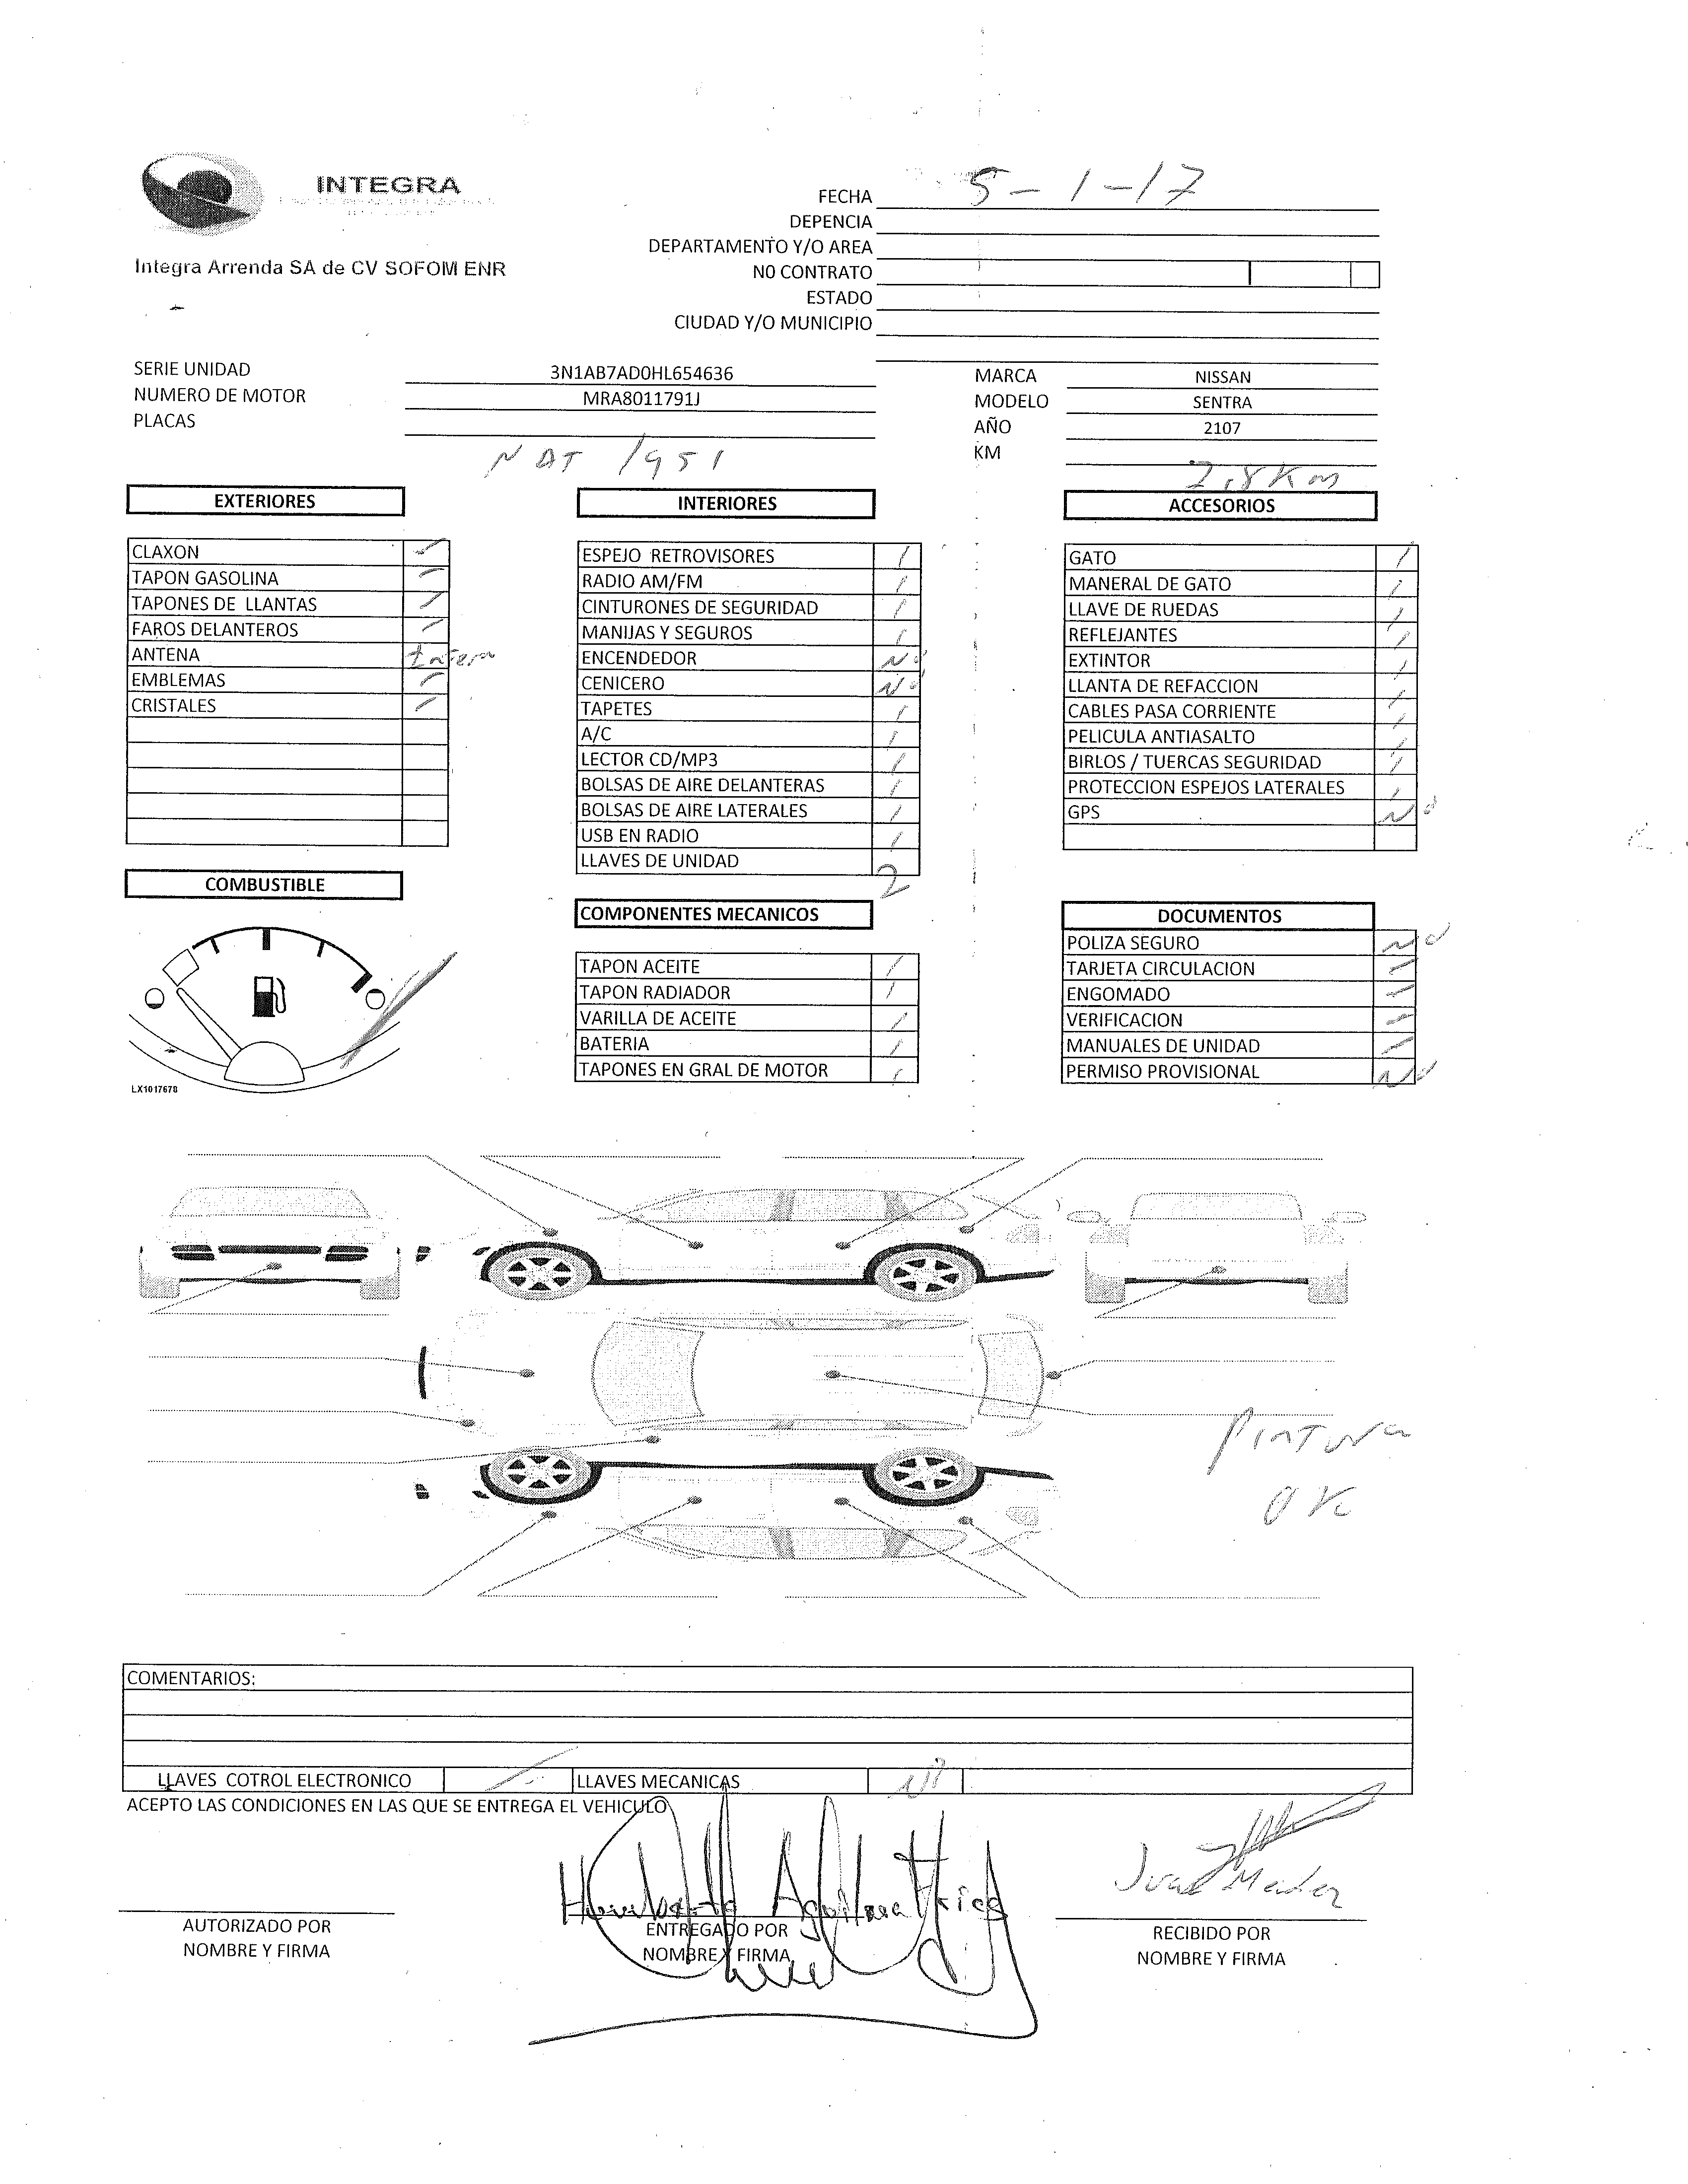 INTEGRA
Integra Arrenda SA de CV SOFOM ENR
FECHA 5-1-17
DEPENCIA
DEPARTAMENTO Y/O AREA
N0 CONTRATO
ESTADO
CIUDAD Y/O MUNICIPIO
SERIE UNIDAD 3N1AB7AD0HL654636
NUMERO DE MOTOR MRA8011791J
PLACAS
NAT 1951
MARCA NISSAN
MODELO SENTRA
AÑO 2107
KM 2,8 Km
EXTERIORES
CLAXON
TAPON GASOLINA
TAPONES DE LLANTAS
FAROS DELANTEROS
ANTENA
EMBLEMAS
CRISTALES
COMBUSTIBLE
LX1017678
INTERIORES
ESPEJO RETROVISORES /
RADIO AM/FM /
CINTURONES DE SEGURIDAD /
MANIJAS Y SEGUROS /
ENCENDEDOR No
CENICERO No
TAPETES /
A/C /
LECTOR CD/MP3 /
BOLSAS DE AIRE DELANTERAS /
BOLSAS DE AIRE LATERALES /
USB EN RADIO /
LLAVES DE UNIDAD 2
COMPONENTES MECANICOS
TAPON ACEITE /
TAPON RADIADOR /
VARILLA DE ACEITE /
BATERIA /
TAPONES EN GRAL DE MOTOR /
ACCESORIOS
GATO /
MANERAL DE GATO /
LLAVE DE RUEDAS /
REFLEJANTES /
EXTINTOR /
LLANTA DE REFACCION /
CABLES PASA CORRIENTE /
PELICULA ANTIASALTO /
BIRLOS / TUERCAS SEGURIDAD /
PROTECCION ESPEJOS LATERALES /
GPS No
DOCUMENTOS
POLIZA SEGURO No
TARJETA CIRCULACION
ENGOMADO
VERIFICACION
MANUALES DE UNIDAD
PERMISO PROVISIONAL No
Pintura
OK
COMENTARIOS:
LLAVES COTROL ELECTRONICO
LLAVES MECANICAS
ACEPTO LAS CONDICIONES EN LAS QUE SE ENTREGA EL VEHICULO
AUTORIZADO POR
NOMBRE Y FIRMA
Humberto Aguilera
ENTREGADO POR
NOMBRE Y FIRMA
RECIBIDO POR
NOMBRE Y FIRMA